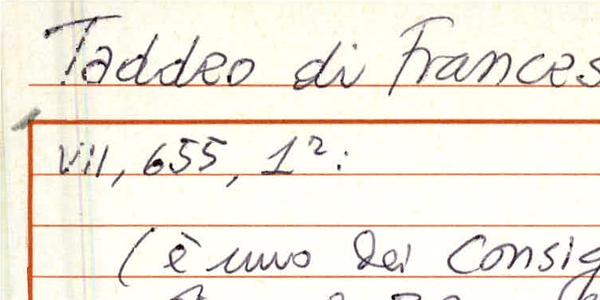 Taddeo di Frances
VII, 655, 1²:
(è uno dei Consig